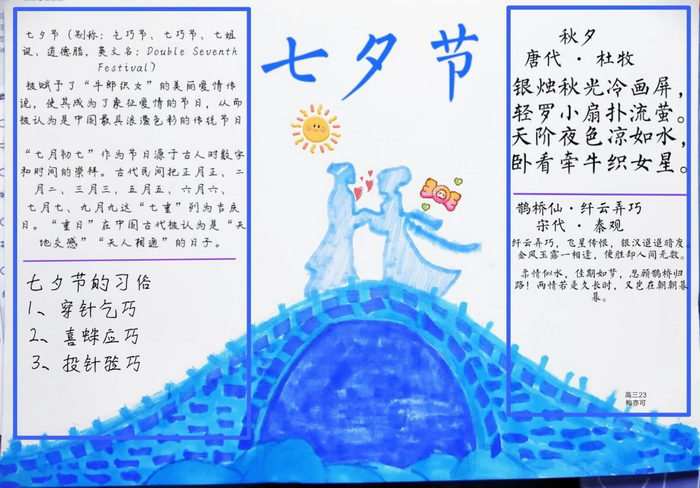 七夕节
七夕节（别称：乞巧节、七巧节、七姐
诞、道德腊，英文名：Double Seventh
Festival）
被赋予了“牛郎织女”的美丽爱情传
说，使其成为了象征爱情的节日，从而
被认为是中国最具浪漫色彩的传统节日
“七月初七”作为节日源于古人对数字
和时间的崇拜。古代民间把正月正、二
月二、三月三、五月五、六月六、
七月七、九月九这“七重”列为吉庆
日。“重日”在中国古代被认为是“天
地交感”“天人相通”的日子。
七夕节的习俗
1、穿针乞巧
2、喜蛛应巧
3、投针验巧
秋夕
唐代·杜牧
银烛秋光冷画屏，
轻罗小扇扑流萤。
天阶夜色凉如水，
卧看牵牛织女星。
鹊桥仙·纤云弄巧
宋代·秦观
纤云弄巧，飞星传恨，银汉迢迢暗度。
金风玉露一相逢，便胜却人间无数。
柔情似水，佳期如梦，忍顾鹊桥归
路！两情若是久长时，又岂在朝朝暮
暮。
高三23